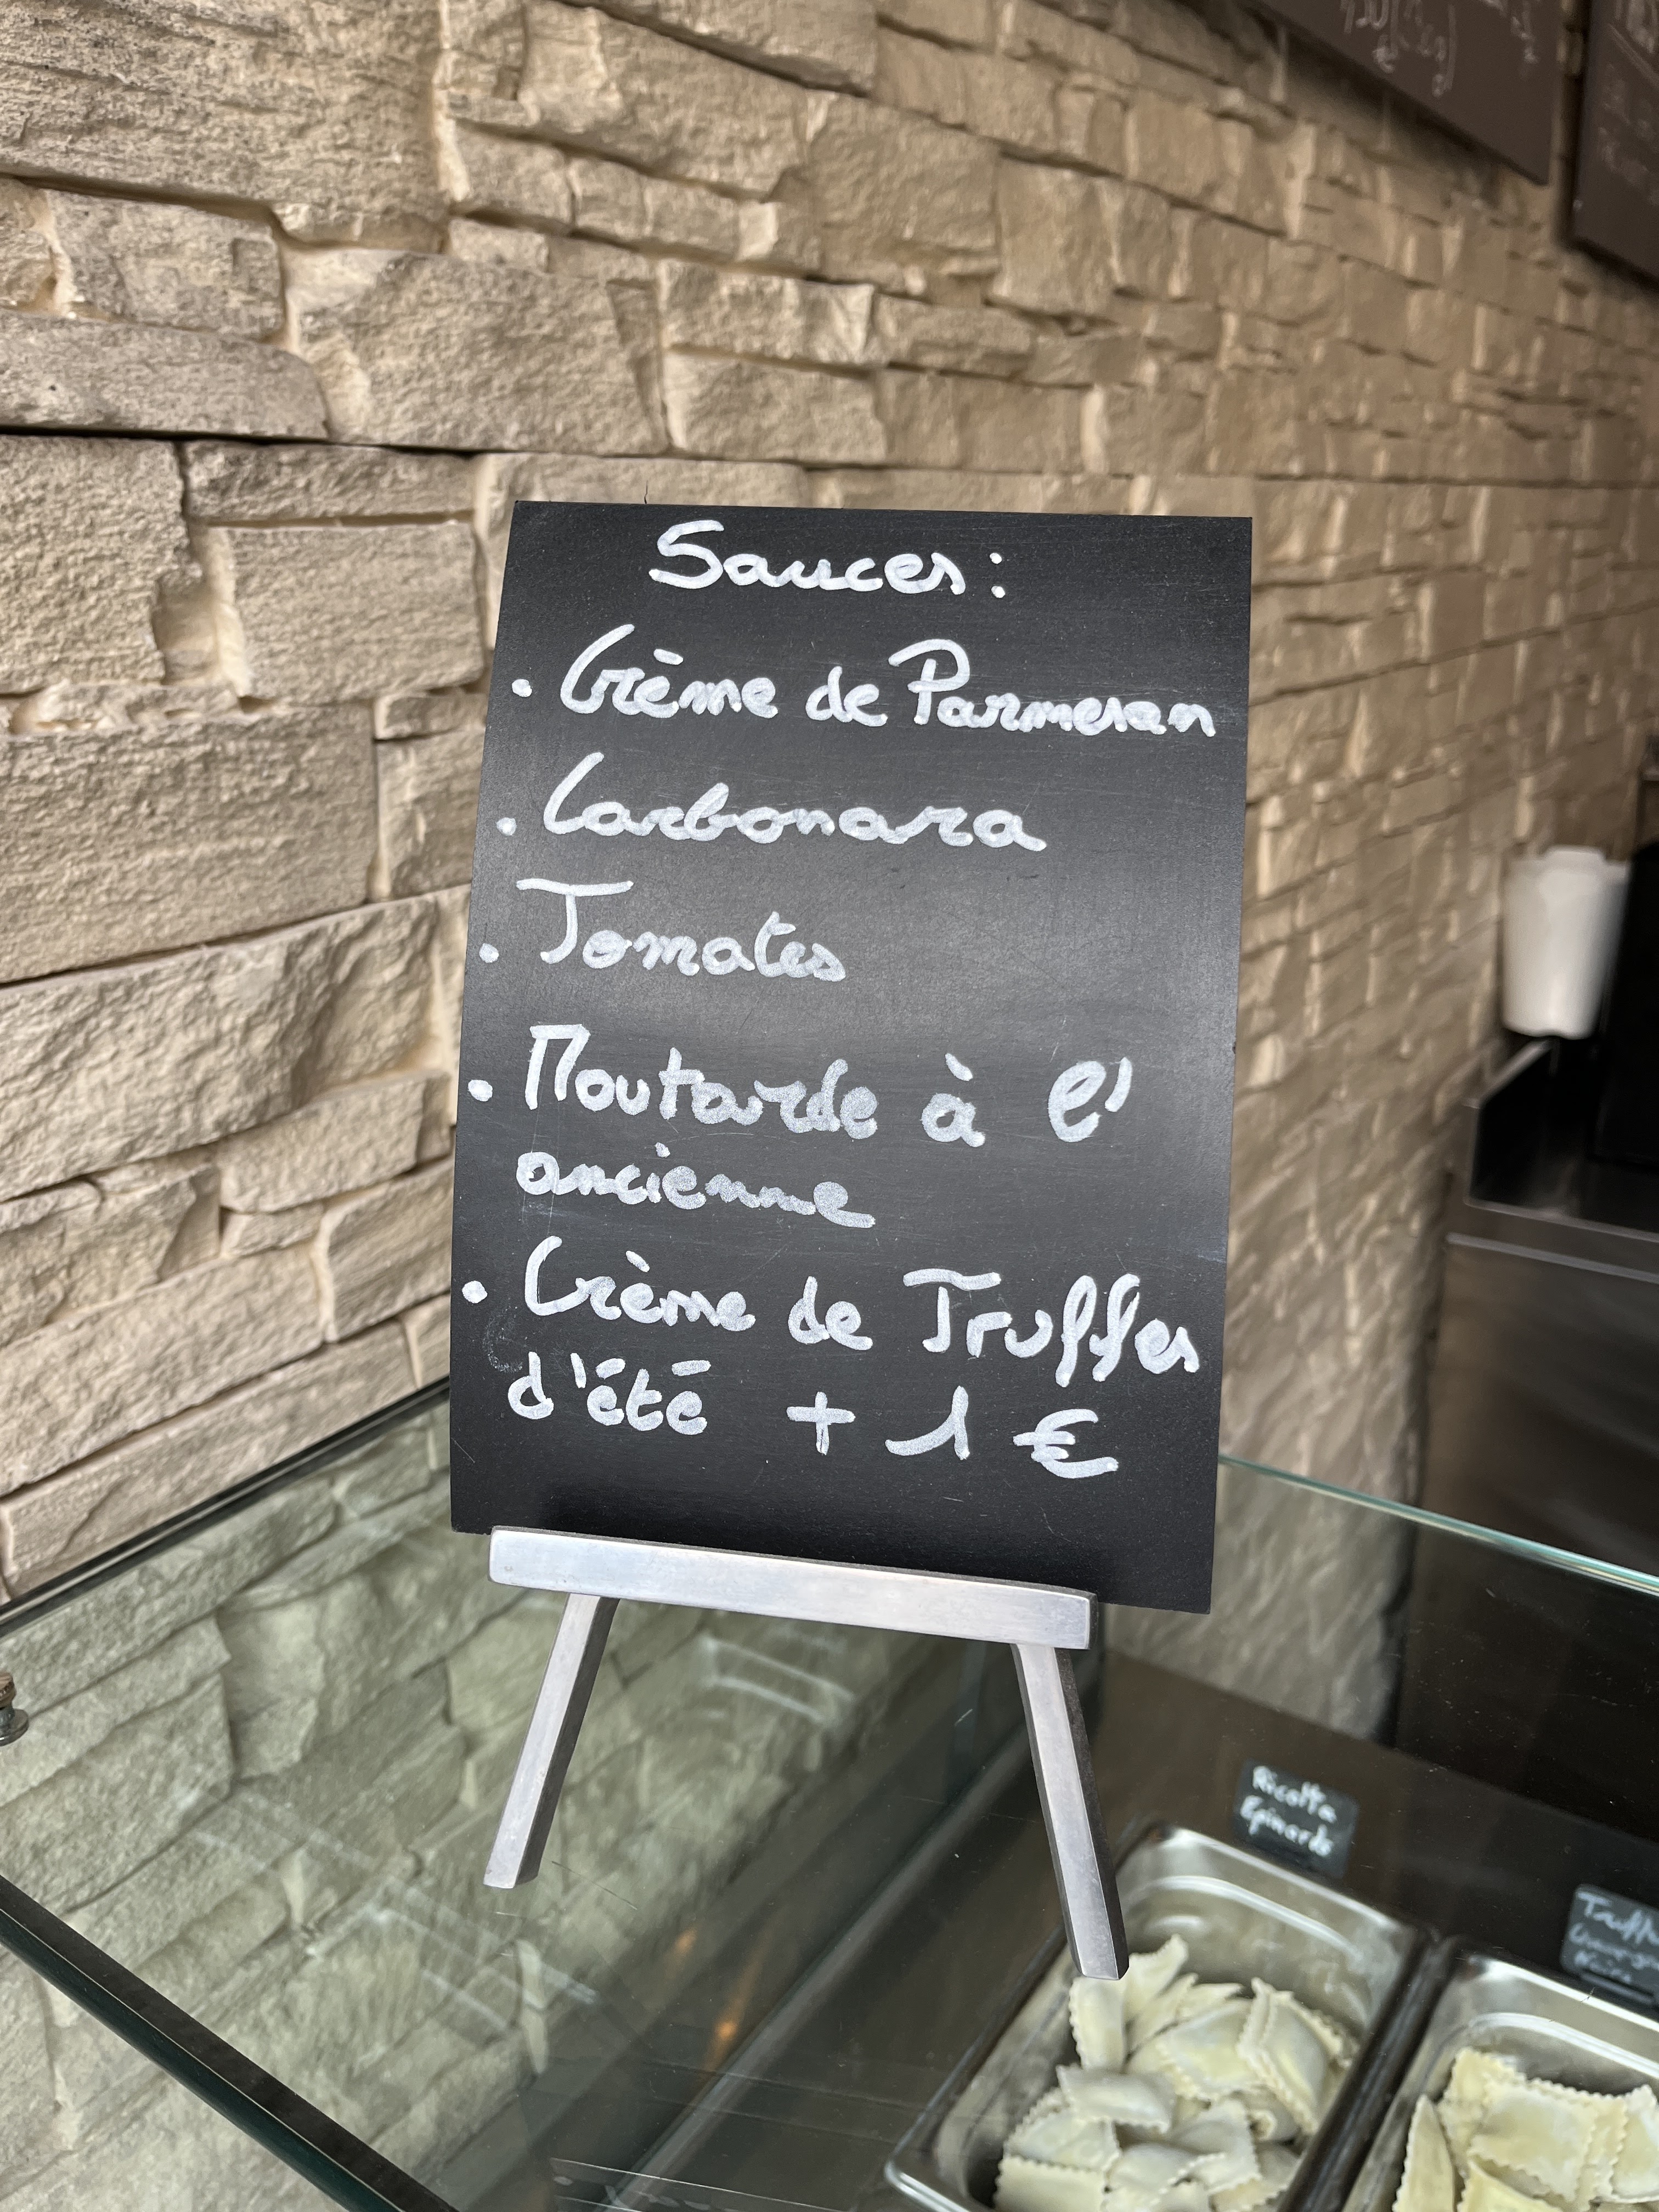 Sauces :
. Crème de Parmesan
. Carbonara
. Tomates
. Moutarde à l'
ancienne
. Crème de Truffes
d'été + 1 €
Ricotta
Epinards